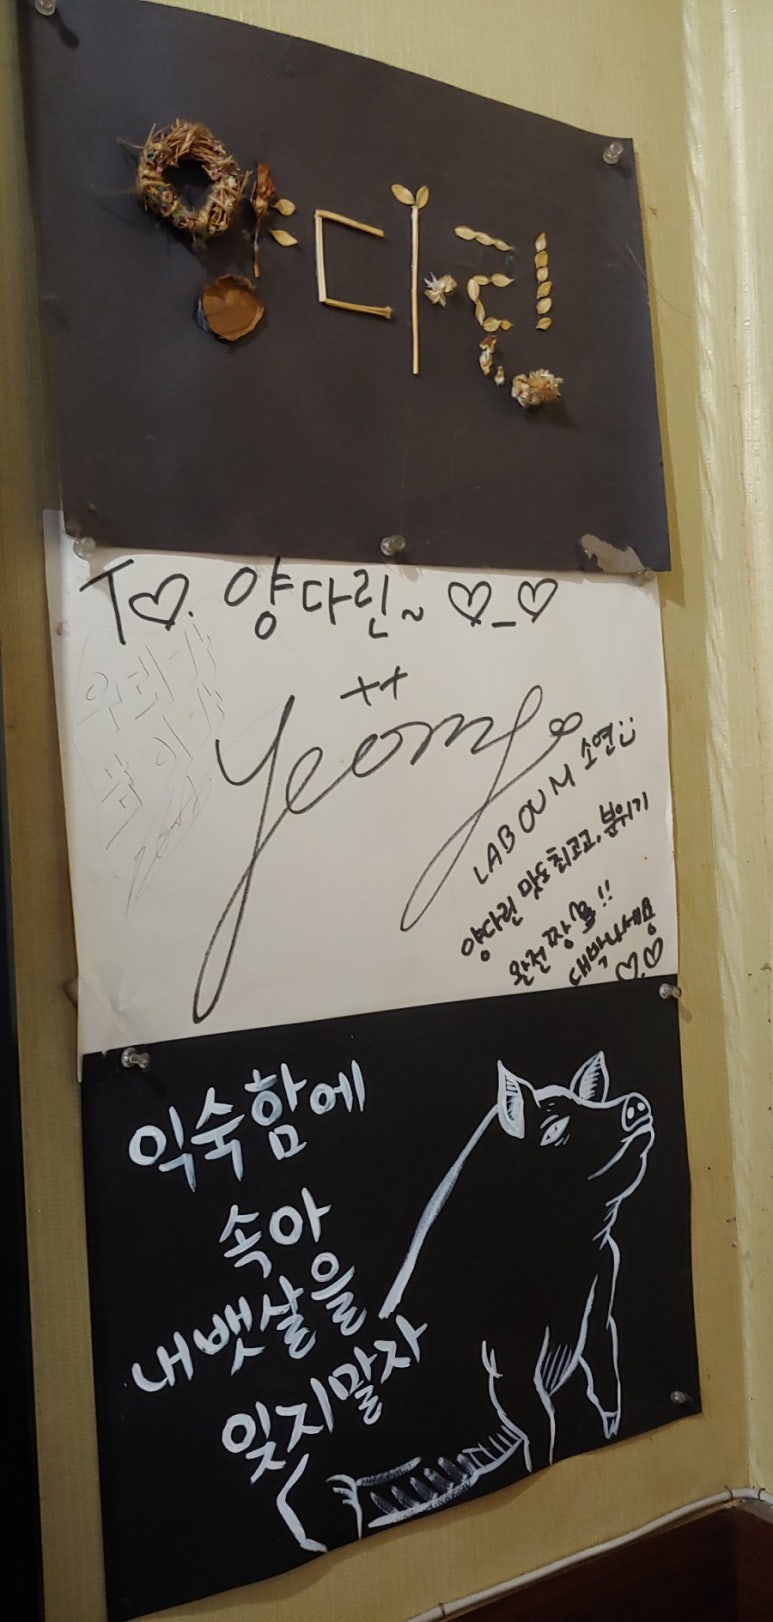 양다린
TO. 양다린~ ♡_♡
LABOUM 소연
양다린 맛도 최고고, 분위기
완전 짱!!
대박나세용
♡♡
익숙함에
속아
내뱃살을
잊지말자